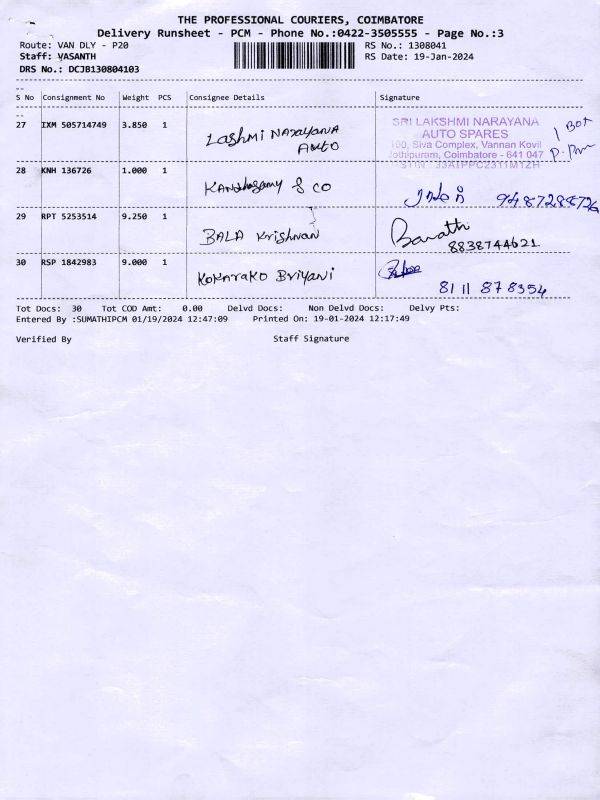 THE PROFESSIONAL COURIERS, COIMBATORE
Delivery Runsheet - PCM - Phone No.:0422-3505555 - Page No.:3
Route: VAN DLY - P20
RS No.: 1308041
Staff: VASANTH
RS Date: 19-Jan-2024
DRS No.: DCJB130804103
S No Consignment No Weight PCS Consignee Details Signature
27 IXM 505714749 3.850 1 Lashmi Narayana Auto
SRI LAKSHMI NARAYANA
AUTO SPARES
100, Siva Complex, Vannan Kovil
Jothipuram, Coimbatore - 641 047
28 KNH 136726 1.000 1 Kandhasamy & CO
29 RPT 5253514 9.250 1 BALA Krishnan Barath
8838744621
30 RSP 1842983 9.000 1 KOKARAKO Briyani
81 11 87 8354
Tot Docs: 30 Tot COD Amt: 0.00 Delvd Docs: Non Delvd Docs: Delvy Pts:
Entered By :SUMATHIPCM 01/19/2024 12:47:09 Printed On: 19-01-2024 12:17:49
Verified By Staff Signature